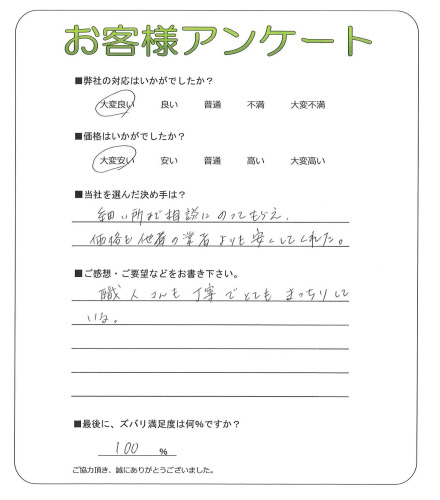 お客様アンケート
■弊社の対応はいかがでしたか？
大変良い 良い 普通 不満 大変不満
■価格はいかがでしたか？
大変安い 安い 普通 高い 大変高い
■当社を選んだ決め手は？
細い所まで相談にのってもらえ、
価格も他者の業者よりも安くしてくれた。
■ご感想・ご要望などをお書き下さい。
職人さんも丁寧でとてもきっちりして
いる。
■最後に、ズバリ満足度は何％ですか？
100 %
ご協力頂き、誠にありがとうございました。